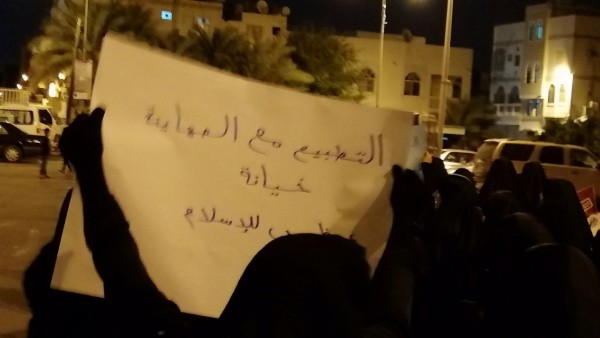 التطبيع مع الصهاينة
خيانة
للإسلام